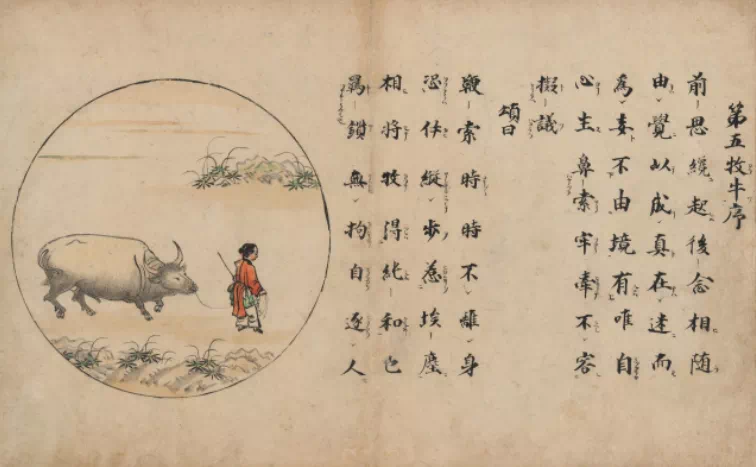 第五牧牛序
前思纔起後念相随
由覺以成真在迷而
為妄不由境有唯自
心生鼻索牢牽不容
擬議
頌曰
鞭索時時不離身
恐伊縱歩惹埃塵
相将牧得純和也
羈鎖無拘自逐人